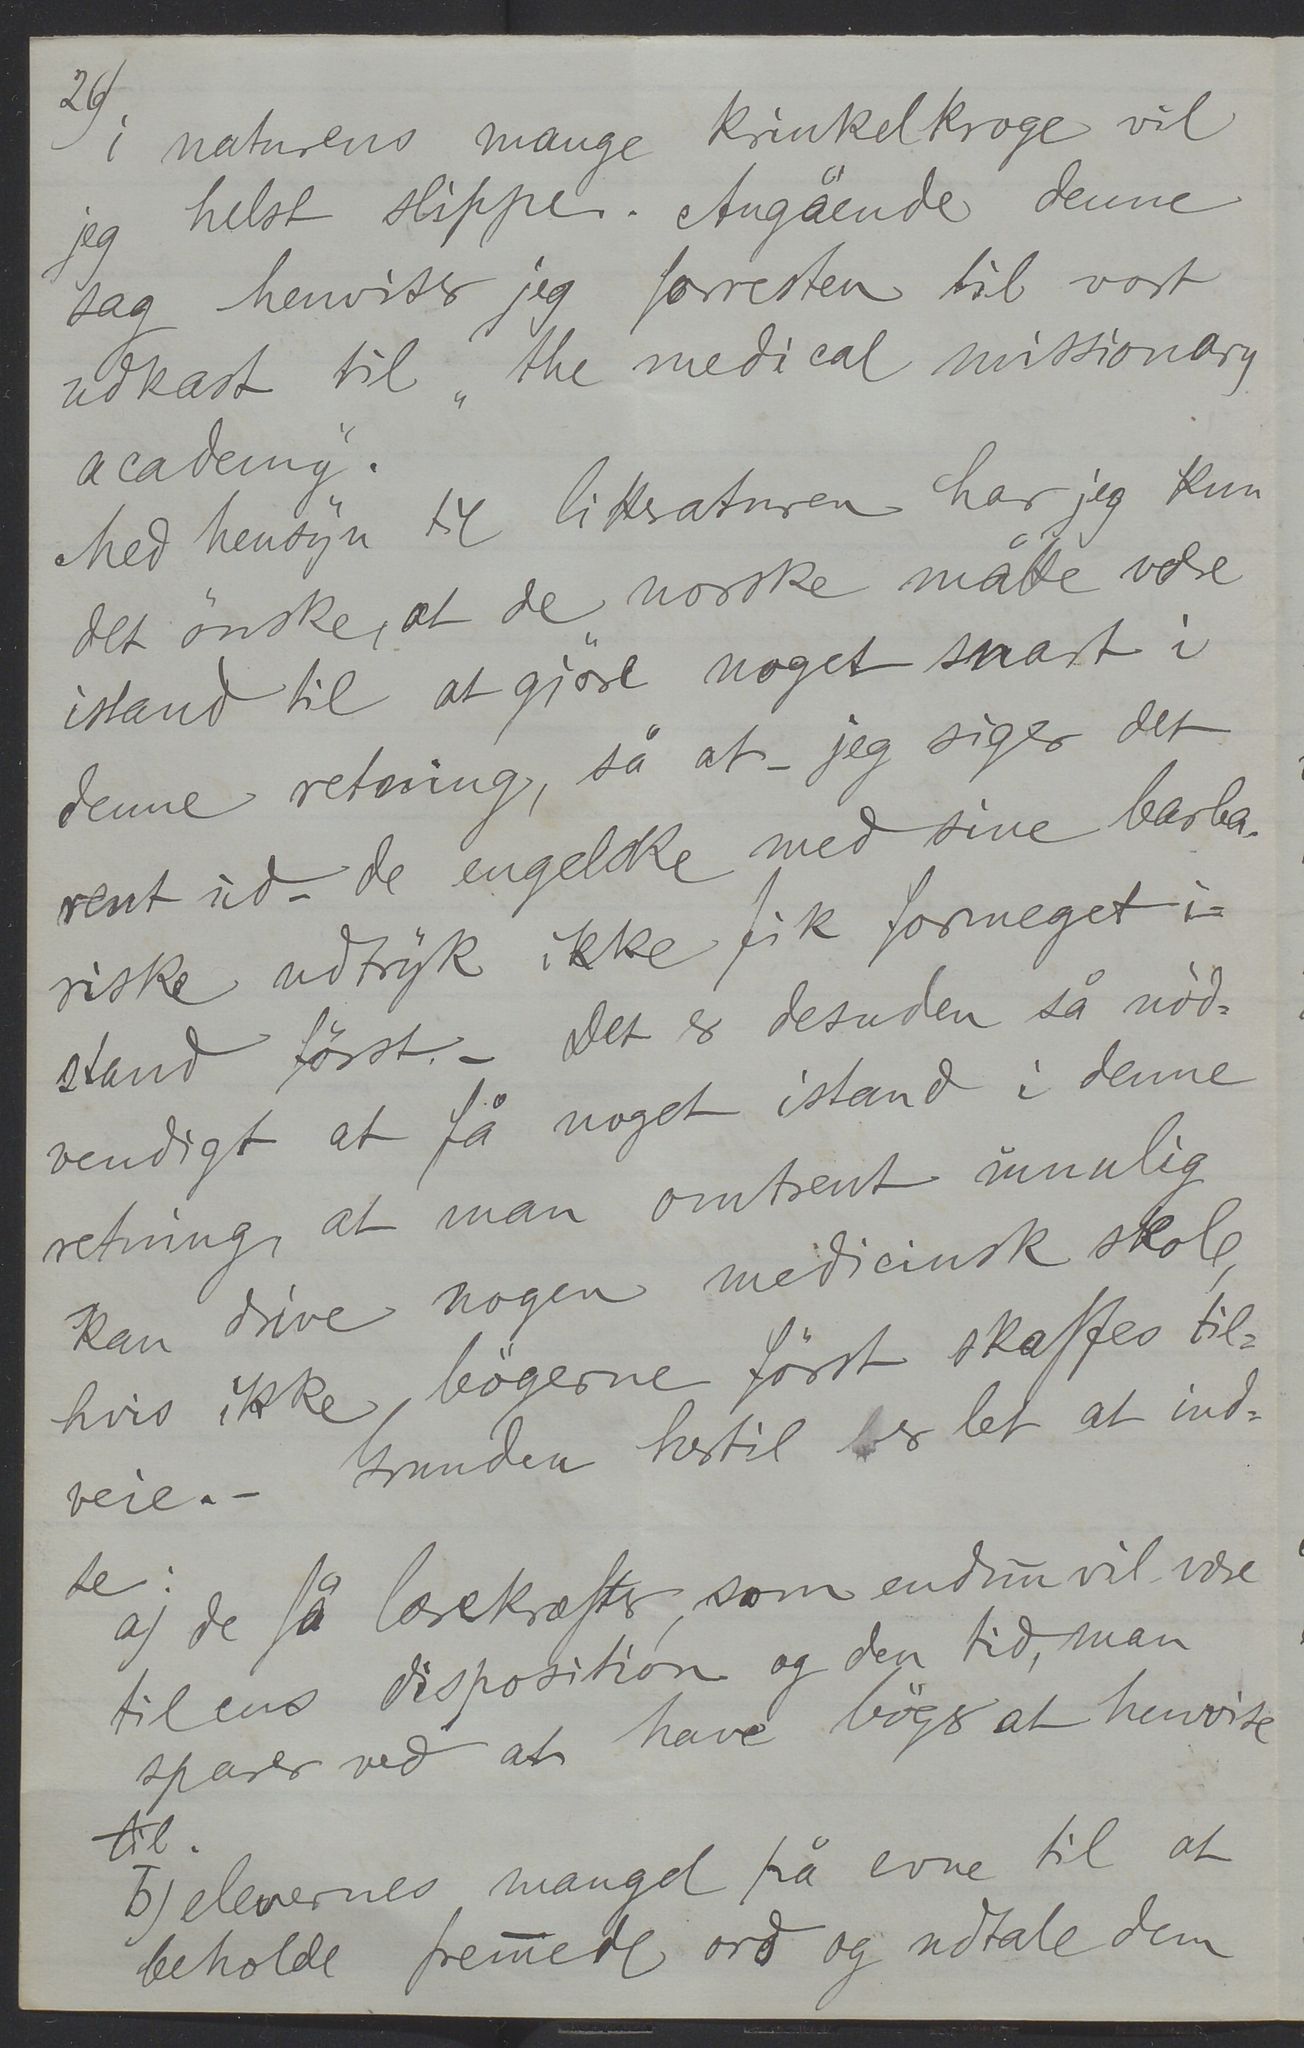 26)
i naturens mange krinkelkroge vil
jeg helst slippe. Angående denne
sag henviser jeg forresten til vort
udkast til „the medical missionary
academy".
Med hensyn til litteraturen har jeg kun
det önske, at de norske måtte være
istand til at gjöre noget snart i
denne retning, så at – jeg siger det
rent ud – de engelske med sine barba-
riske udtryk ikke fik formeget i=
stand först. – Det er desuden så nöd=
vendigt at få noget istand i denne
retning, at man omtrent umulig
kan drive nogen medicinsk skole,
hvis ikke bögerne först skaffes til=
veie. – Grunden hertil er let at ind=
se:
a) de få lærekræfter, som endnu vil være
til ens disposition og den tid, man
sparer ved at have böger at henvise
til.
b) elevernes mangel på evne til at
beholde fremede ord og udtale dem